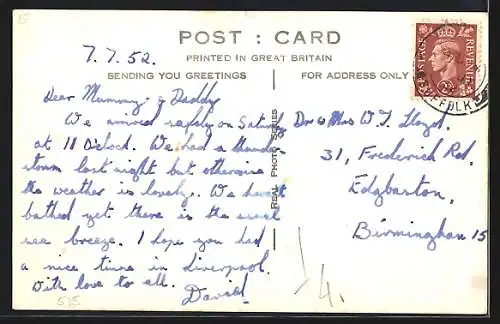 POST : CARD
PRINTED IN GREAT BRITAIN
SENDING YOU GREETINGS
FOR ADDRESS ONLY
7.7.52.
Dear Mummy & Daddy
We arrived safely on Saturday
at 11 O'clock. We had a thunder
storm last night but otherwise
the weather is lovely. We havent
bathed yet there is the usual
sea breeze. I hope you had
a nice time in Liverpool.
With love to all.
David
REAL PHOTO SERIES
Dr & Mrs W. T. Lloyd.
31, Frederick Rd,
Edgbaston,
Birmingham 15
POSTAGE REVENUE
2D
SUFFOLK
14.